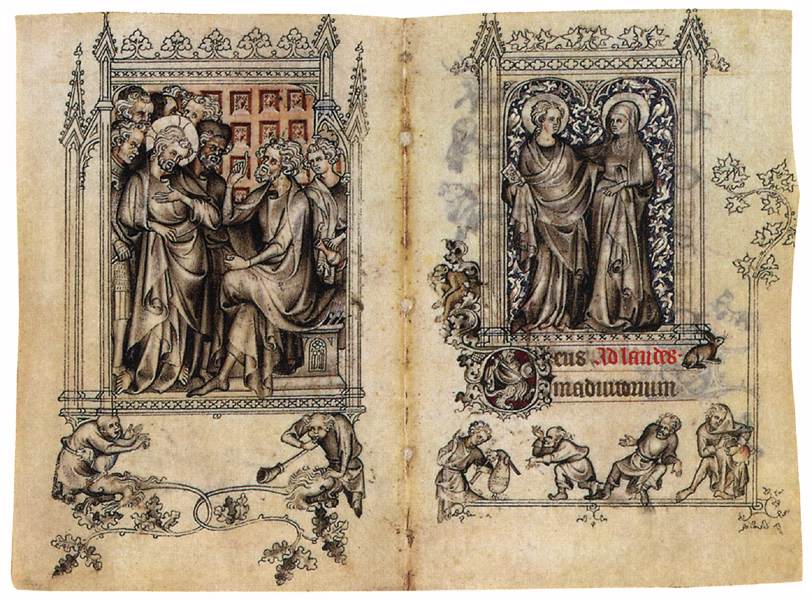 Deus Ad laudes.
in adiutorium